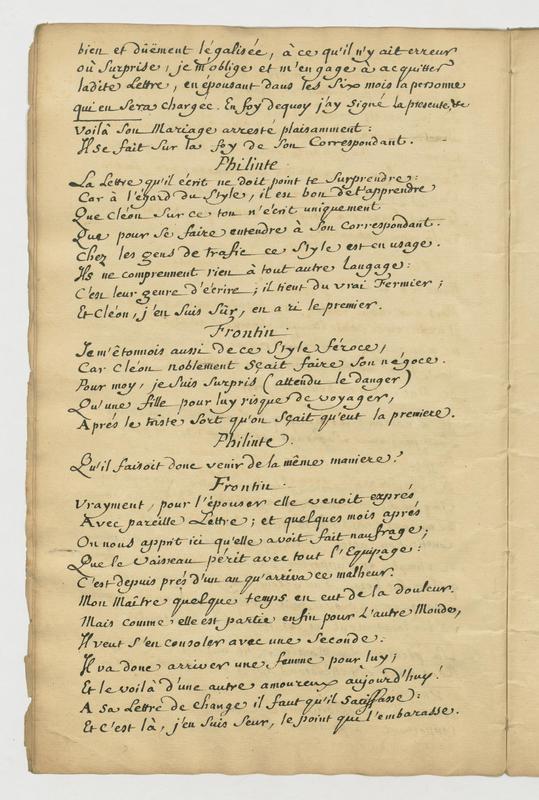 bien et dûëment légalisée, à ce qu'il n'y ait erreur
où Surprise, je m'oblige et m'engage à acquitter
ladite Lettre, en épousant dans les Six mois la personne
qui en Sera chargée. En foy dequoy j'ay Signé la presente, &c
Voilà Son Mariage arresté plaisamment:
Il se fait Sur la foy de Son Correspondant.
Philinte.
La Lettre qu'il écrit ne doit point te Surprendre:
Car à l'égard du Style, il est bon de t'apprendre
Que Cléon Sur ce ton n'écrit uniquement
Que pour Se faire entendre à Son Correspondant.
Chez les gens de trafic ce Style est en usage.
Ils ne comprennent rien à tout autre Langage:
C'est leur genre d'écrire; il tient du vrai Fermier;
Et Cléon, j'en Suis Sûr, en a ri le premier.
Frontin.
Je m'étonnois aussi de ce Style féroce,
Car Cléon noblement Sçait faire Son négoce.
Pour moy, je Suis Surpris (attendu le danger)
Qu'une fille pour luy risque de voyager,
Aprés le triste Sort qu'on Sçait qu'eut la premiere.
Philinte.
Qu'il faisoit donc venir de la même maniere?
Frontin.
Vrayment, pour l'épouser elle venoit exprés
Avec pareille Lettre; et quelques mois aprés
On nous apprit ici qu'elle avoit fait naufrage;
Que le Vaisseau périt avec tout l'Equipage:
C'est depuis prés d'un an qu'arriva ce malheur.
Mon Maître quelque temps en eut de la douleur.
Mais comme elle est partie enfin pour L'autre Monde,
Il veut S'en consoler avec une Seconde:
Il va donc arriver une femme pour luy;
Et le voilà d'une autre amoureux aujourd'huy!
A Sa Lettre de change il faut qu'il Satisfasse:
Et C'est là, j'en Suis Seur, le point qui l'embarasse.